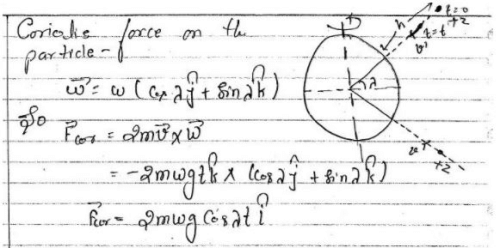 Coriolis force on the
particle-
ω⃗ = ω (cos λ ĵ + sin λ k̂)
So
F⃗cor = 2mv⃗ × ω⃗
= -2mωgt k̂ × (cos λ ĵ + sin λ k̂)
F⃗cor = 2mωg cos λ t î
h
t=0
+z
t=t
v
λ
v
+z